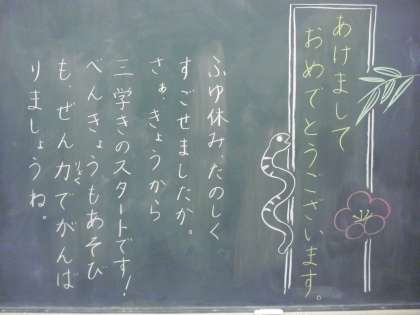 あけまして
おめでとうございます。
ふゆ休み、たのしく
すごせましたか。
さぁ、きょうから
三学きのスタートです!
べんきょうもあそび
も、ぜん力でがんば
りょく
りましょうね。